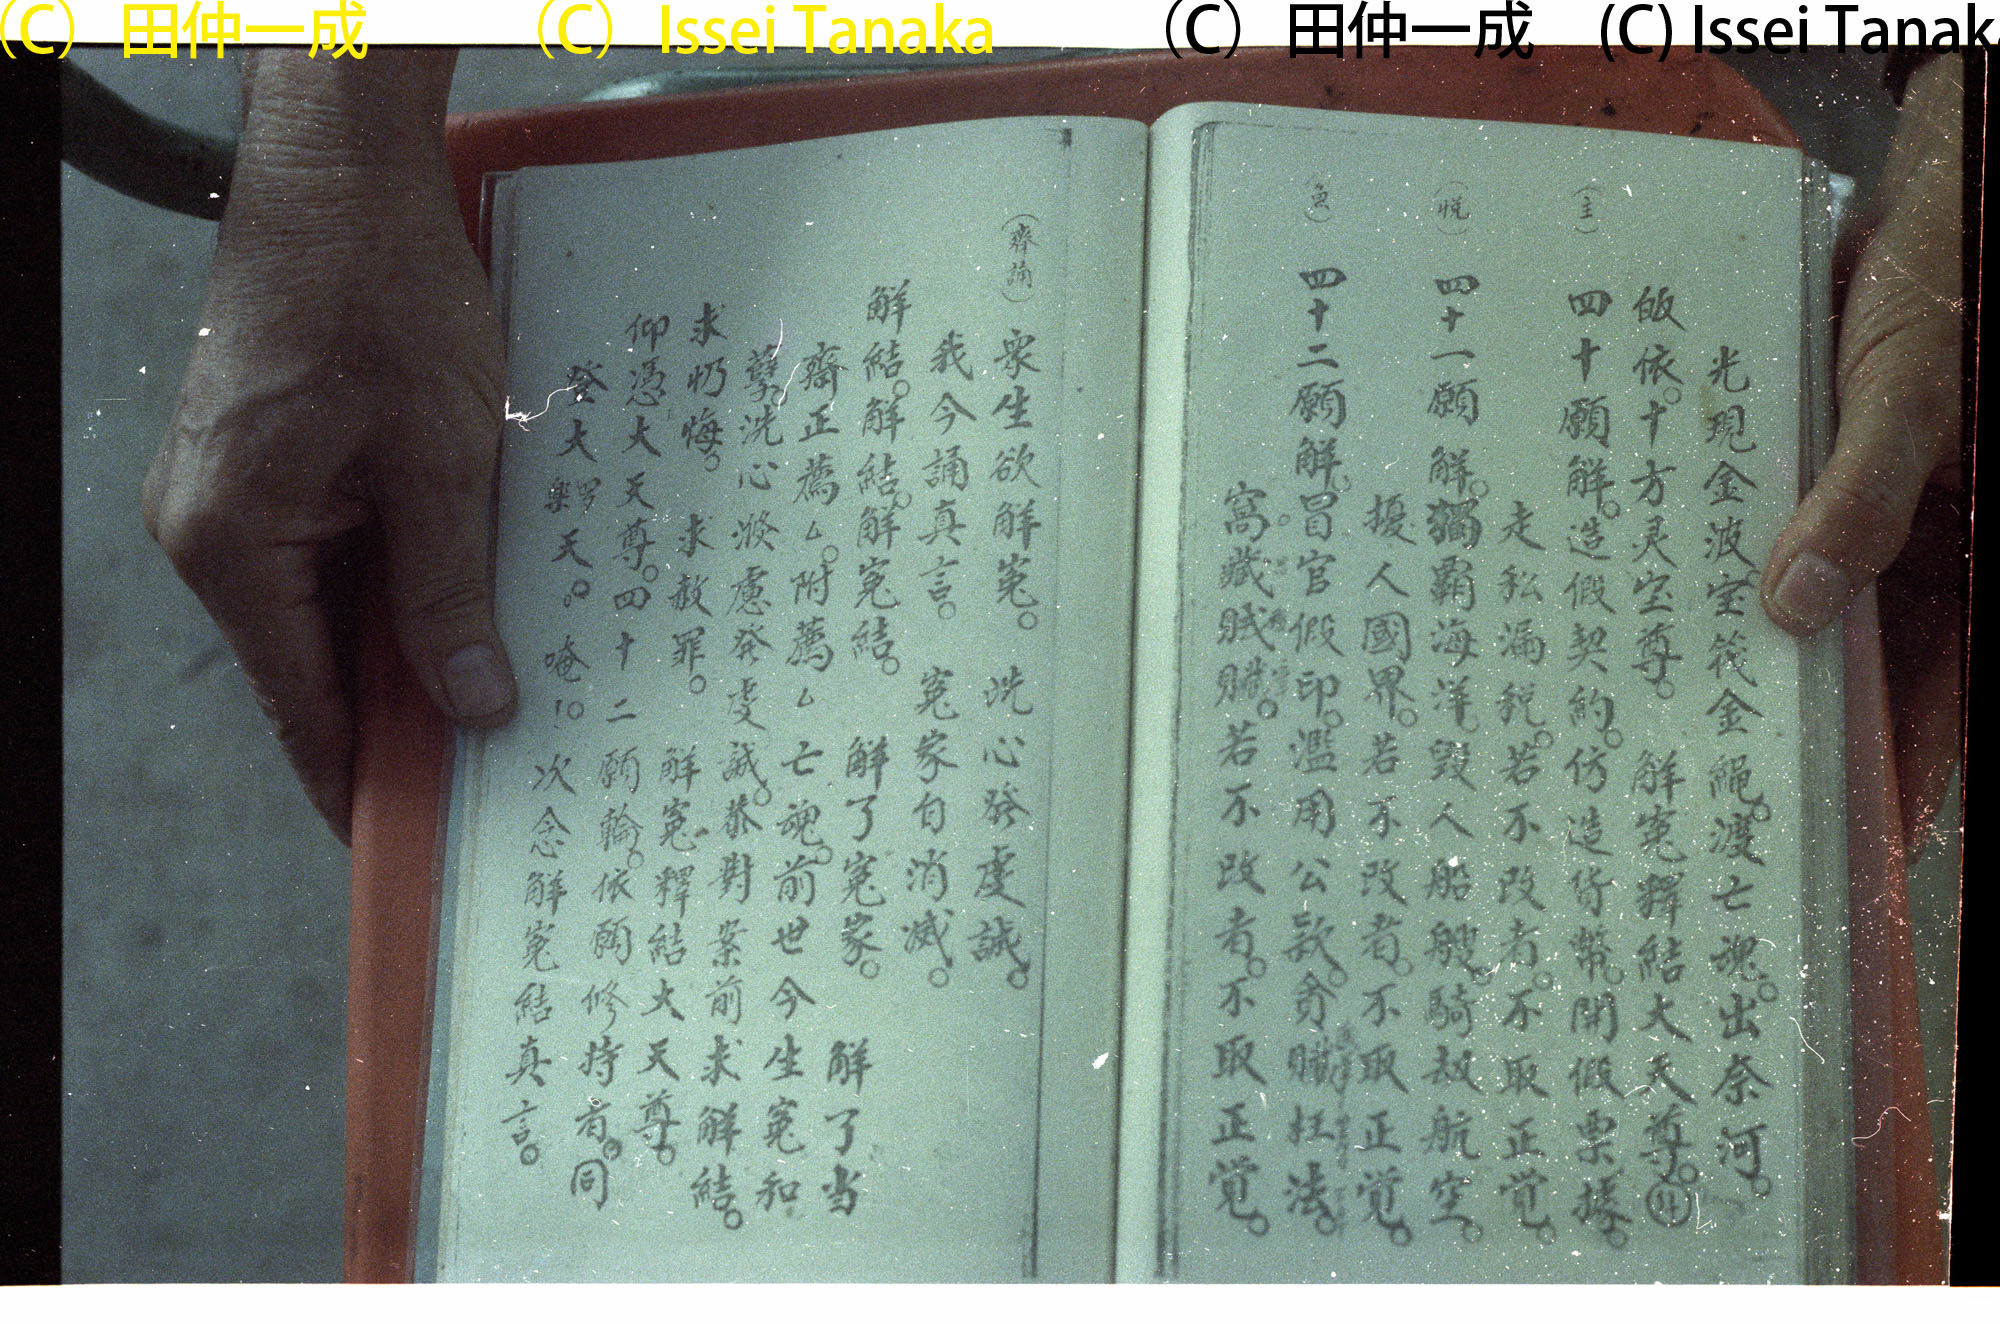 (C) 田仲一成 (C) Issei Tanaka (C) 田仲一成 (C) Issei Tanaka
光現金波。宝筏金繩。渡亡魂。出奈河。
皈依。十方灵宝尊。 解寃釋結大天尊。
(主) 四十願解。造假契約。仿造貨幣。開假票據。
走私漏稅。若不改者。不取正覚。
(悅) 四十一願解。獨霸海洋。毀人船艘。騎劫航空。
擾人國界。若不改者。不取正覚。
(魚) 四十二願解。冒官假印。濫用公款。貪贓枉法。
窩藏賊贓。若不改者。不取正覚。
(齊誦) 眾生欲解寃。 洗心發虔誠。
我今誦真言。 寃家自消滅。
解結。解結。解寃結。 解了寃家。 解了当
齋正薦厶。附薦厶亡魂。前世今生寃和
孽。洗心滌慮發虔誠。恭對案前求解結。
求忏悔。 求赦罪。 解寃釋結大天尊。
仰憑大天尊。四十二願輪。依願修持者。同
登大羅天。。 唵!。次念解寃結真言。